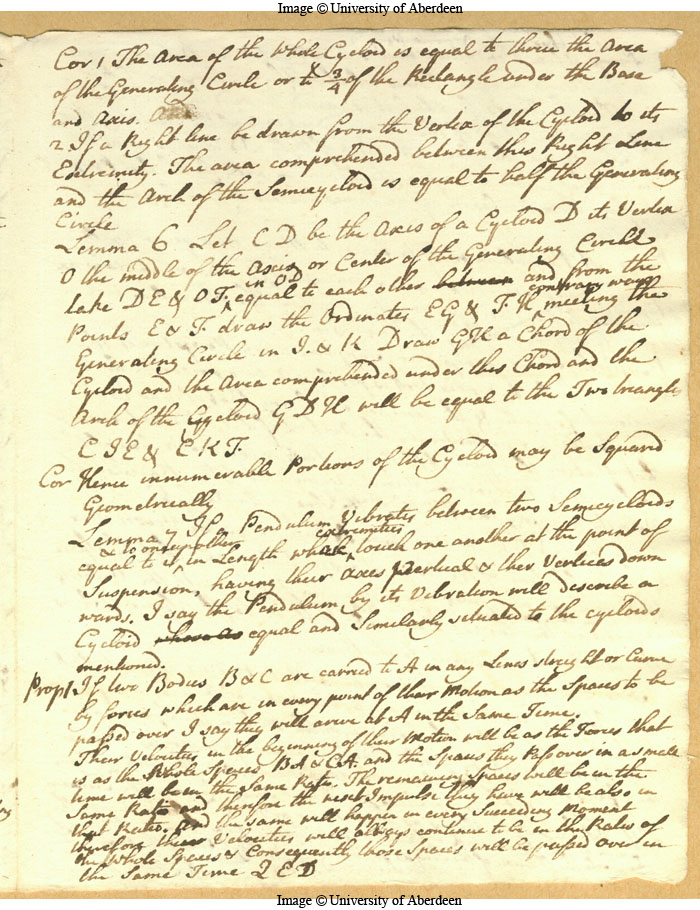 Image © University of Aberdeen
Cor 1 The Area of the Whole Cycloid is equal to thrice the Area
of the Generating Circle or to 3/4 of the Rectangle under the Base
and Axis.
2 If a Right line be drawn from the Vertex of the Cycloid to its
Extremity. The area comprehended between this Right Line
and the Arch of the Semicycloid is equal to half the Generating
Circle
Lemma 6 Let C D be the Axis of a Cycloid D its Vertex
O the middle of the Axis or Center of the Generating Circle
in OD
take D E & O F. equal to each other between and from the
contrary ways
Points E & F. draw the Ordinates E G & F. H meeting the
Generating Circle in I. & K Draw G H a Chord of the
Cycloid and the Area comprehended under this Chord and the
Arch of the Cycloid G D H will be equal to the Two triangles
C I E & C K F.
Cor Hence innumerable Portions of the Cycloid may be Squard
Geometrically
Lemma 7 If a Pendulum Vibrates between two Semicycloids
& to one another extremities
equal to it in Length whose touch one another at the point of
Suspension, having their axes vertical & their Vertices down
wards. I say the Pendulum by its Vibration will describe a
Cycloid equal and Similarly situated to the cycloids
mentioned.
Prop 1 If two Bodies B & C are carried to A in any Lines streight or Curve
by forces which are in every point of their Motion as the Spaces to be
passed over I say they will arive at A in the Same Time.
Their Velocities in the beginning of their Motion will be as the Forces that
is as the Whole Spaces BA & CA. and the Spaces they Pass over in a small
time will be in the Same Ratio. The remaining Spaces will be in the
Same Ratio and therefore the next Impulse they have will be also in
that Ratio. And the same will happen in every Succeeding Moment
therefore their Velocities will always continue to be in the Ratio of
the Whole Spaces & Consequently those Spaces will be passed over in
the Same Time Q E D
Image © University of Aberdeen